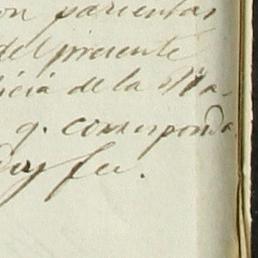 on parientas
del presente
icia de la Ma-
q. corresponda
Doy fee.